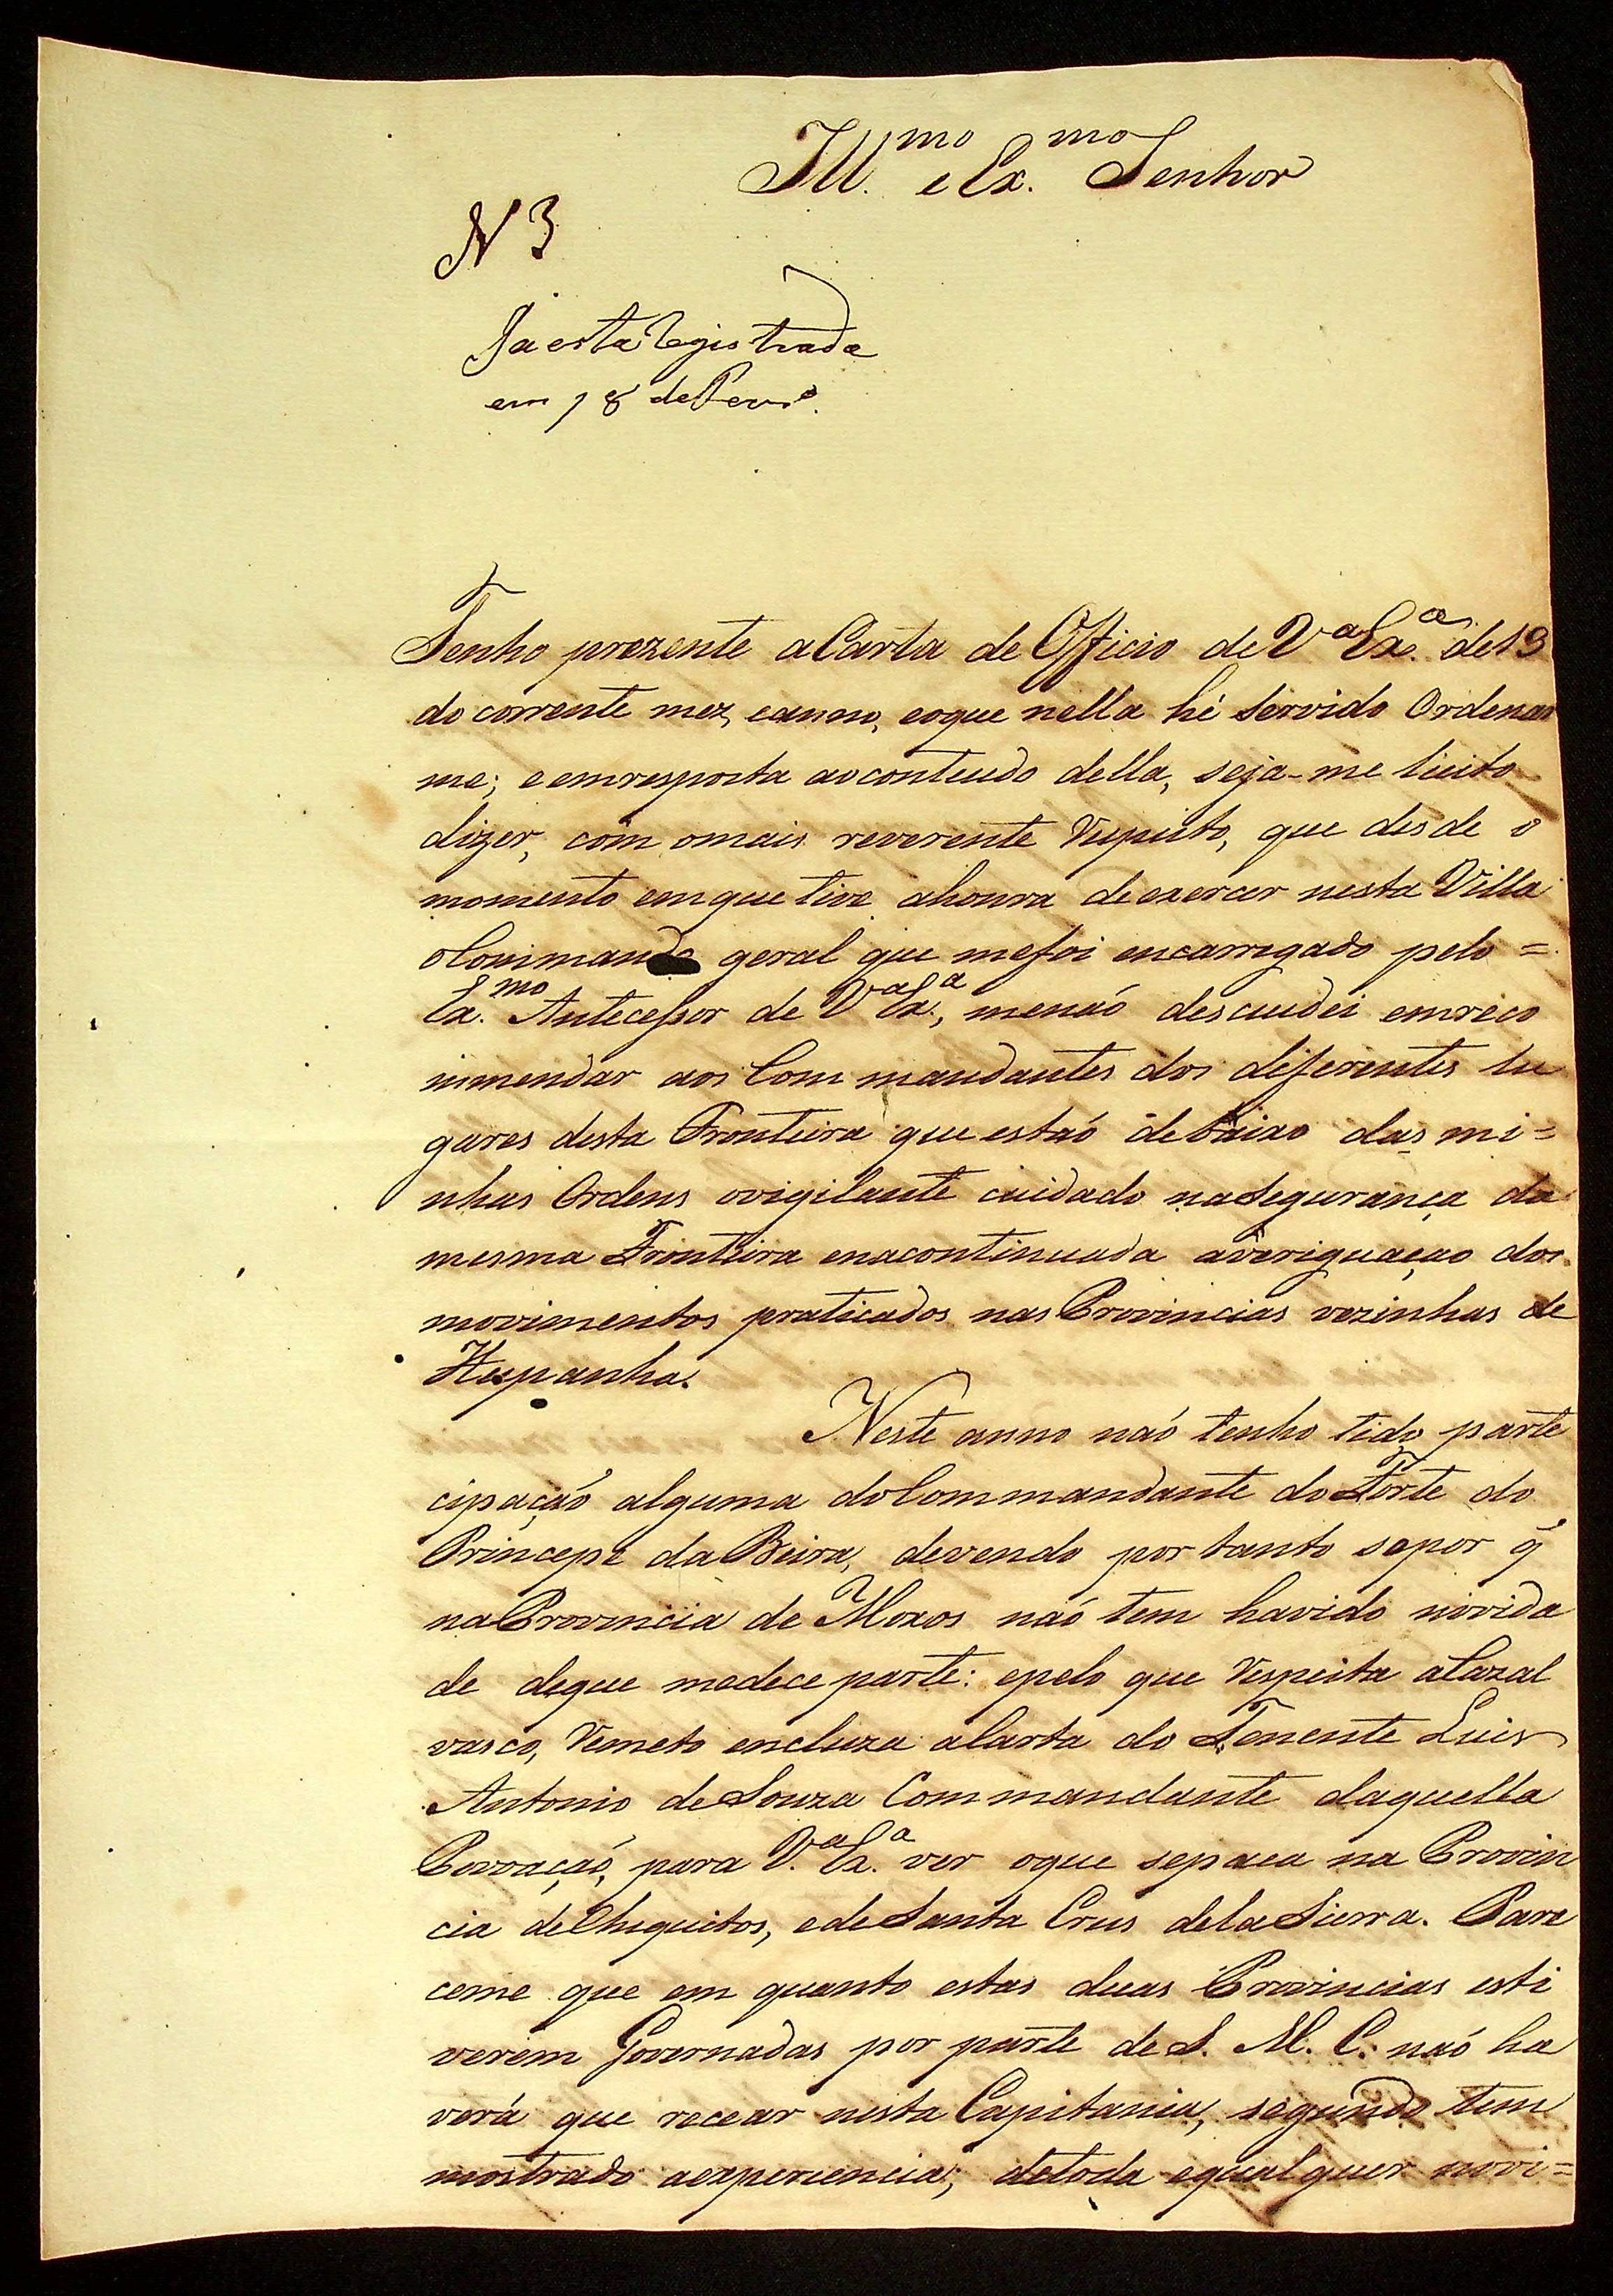 Ill.mo e Ex.mo Senhor
N 3
Ja esta Registrada
em 18 de Fevro.
Tenho prezente a Carta de Officio de Va Exa. de 13
do corrente mez, eanno, eoque nella hé servido Ordenar
me; e emresposta aoconteudo della, seja-me licito
dizer, com omais reverente Respeito, que desde o
momento emque tive ahonra deexercer nesta Villa
oCommando geral que mefoi encarregado pelo =
Ex.mo Antecessor de Va Exa., menaó descuidei emreco
mmendar aos Commandantes dos diferentes lu
gares desta Fronteira que estaó debaixo das mi=
nhas Ordens ovigilante cuidado naSegurança da
mesma Fronteira enacontinuada averiguaçao dos
movimentos praticados nas Provincias vezinhas de
Hespanha.
Neste anno naó tenho tido parte
cipaçaó alguma doCommandante do Forte do
Princepe daBeira, devendo por tanto supor q̃
naProvincia de Moxos naó tem havido novida
de deque medece parte: epelo que Respeita aCazal
vasco, Remeto encluza aCarta do Tenente Luis
Antonio deSouza Commandante daquella
Povoaçaó, para V.a Ex.a ver oque sepaça na Provin
cia deChiquitos, edeSanta Crus delaSierra. Pare
ceme que em quanto estas duas Provincias esti
verem Governadas por parte de S. M. C. naó ha
verá que recear nesta Capitania, segundo tem
mostrado aexperiencia; detoda equalquer novi=